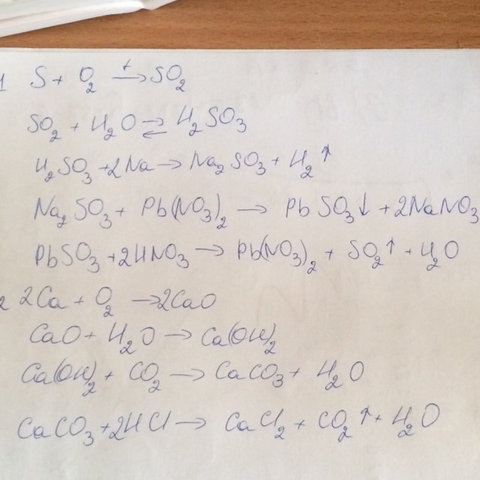 1 S + O₂ →ᵗ SO₂
SO₂ + H₂O ⇌ H₂SO₃
H₂SO₃ + 2Na → Na₂SO₃ + H₂↑
Na₂SO₃ + Pb(NO₃)₂ → PbSO₃↓ + 2NaNO₃
PbSO₃ + 2HNO₃ → Pb(NO₃)₂ + SO₂↑ + H₂O
2 2Ca + O₂ → 2CaO
CaO + H₂O → Ca(OH)₂
Ca(OH)₂ + CO₂ → CaCO₃ + H₂O
CaCO₃ + 2HCl → CaCl₂ + CO₂↑ + H₂O